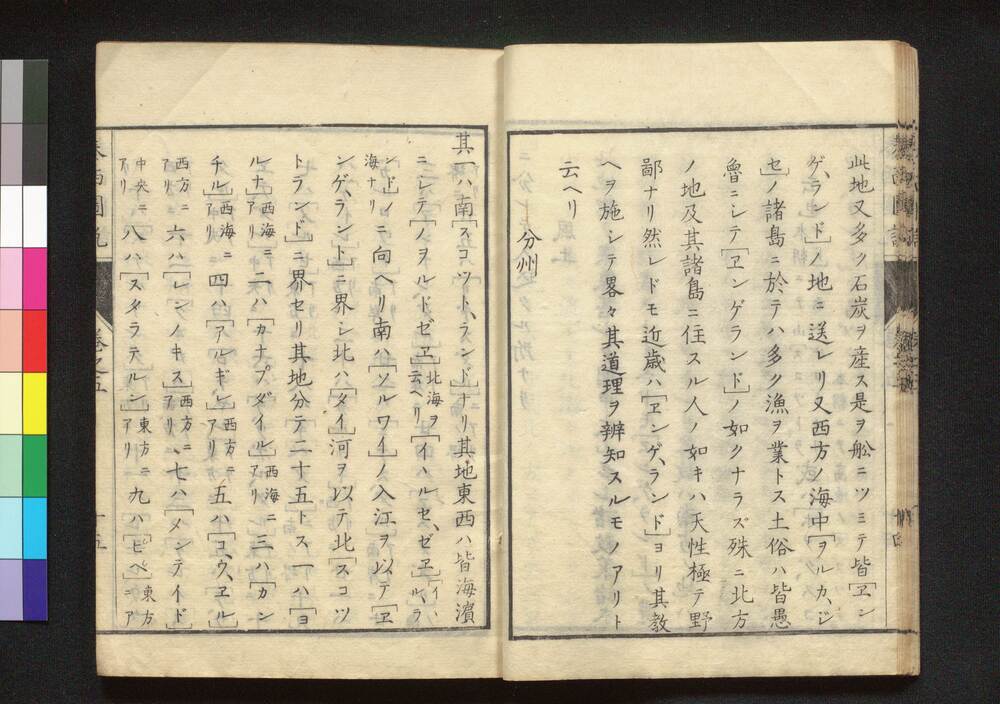 此地又多ク石炭ヲ産ス是ヲ舩ニツミテ皆[ヱン
ゲ、ランド]ノ地ニ送レリ又西方ノ海中[ヲルカ、ジ
セ]ノ諸島ニ於テハ多ク漁ヲ業トス土俗ハ皆愚
魯ニシテ[ヱンゲランド]ノ如クナラズ殊ニ北方
ノ地及其諸島ニ住スル人ノ如キハ天性極テ野
鄙ナリ然レドモ近歳ハ[ヱンゲ、ランド]ヨリ其教
ヘヲ施シテ畧々其道理ヲ辨知スルモノアリト
云ヘリ
分州
其一ハ南[スコッツト、ランド]ナリ其地東西ハ皆海濱
ニシテ[ノヲルド、ゼヱ]北海ヲ云ヘリ[イハルセ、ゼヱ]イハル、ラ
ンド]ノ海ナリニ向ヘリ南ハ[ソルワイ]ノ入江ヲ以テ[ヱ
ンゲ、ラント]ニ界シ北ハ[タイ]河ヲ以テ北[スコツ
トランド]ニ界セリ其地分テ二十五トス一ハ[ヨ
ルナ]西海ニアリ二ハ[カナプダイル]西海ニアリ三ハ[カン
チル]西海ニアリ四ハ[アルギレ]西方ニアリ五ハ[コ、ウ、ヱル]
西方ニアリ六ハ[レンノキス]西方ニアリ七ハ[メンテイド]
中央ニアリ八ハ[スタラテルン]東方ニアリ九ハ[ピペ]東方ニア